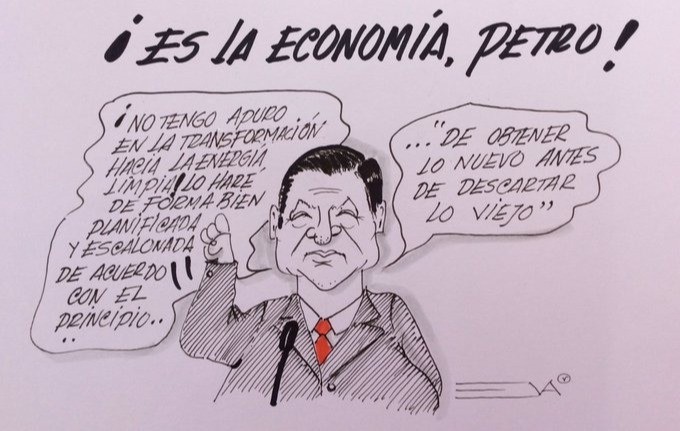 ¡ES LA ECONOMÍA, PETRO!
¡NO TENGO APURO
EN LA TRANSFORMACIÓN
HACIA LA ENERGÍA
LIMPIA! LO HARÉ
DE FORMA BIEN
PLANIFICADA
Y ESCALONADA
DE ACUERDO
CON EL
PRINCIPIO..
..
..."DE OBTENER
LO NUEVO ANTES
DE DESCARTAR
LO VIEJO"